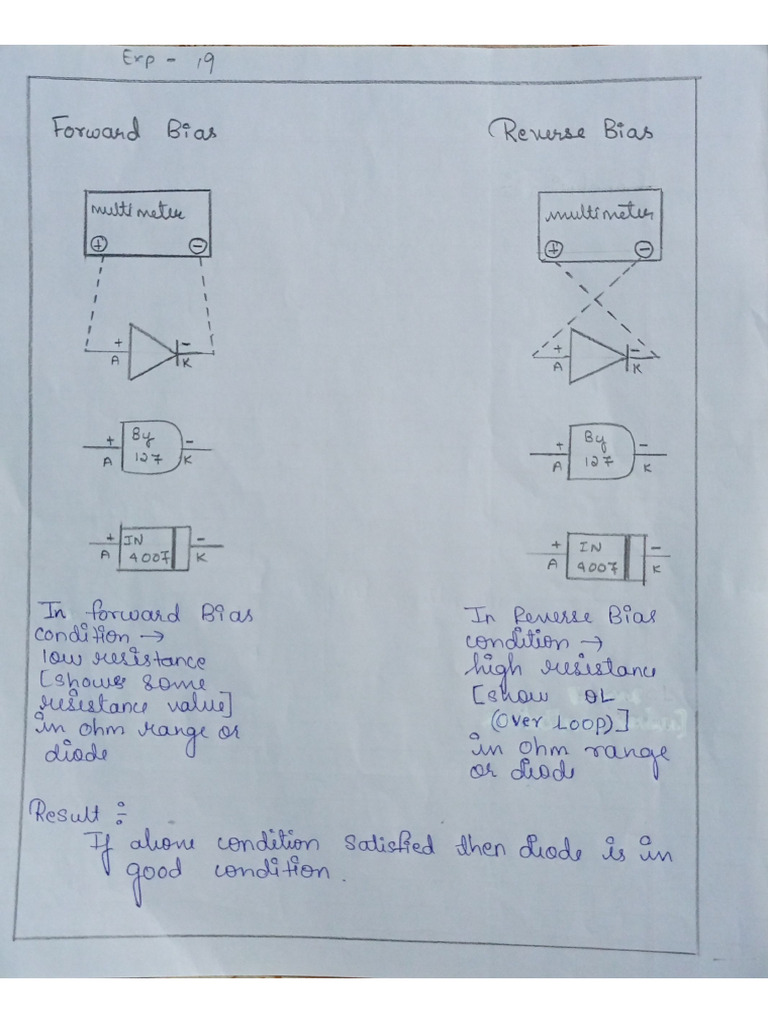 Exp - 19
Forward Bias
multimeter
+ -
+ -
A K
+ By -
A 127 K
+ IN -
A 4007 K
In forward Bias
condition →
low resistance
[shows some
resistance value]
in ohm range or
diode
Reverse Bias
multimeter
+ -
+ -
A K
+ By -
A 127 K
+ IN -
A 4007 K
In Reverse Bias
condition →
high resistance
[show OL
(Over LOOP)]
in ohm range
or diode
Result :-
If above condition satisfied then diode is in
good condition.